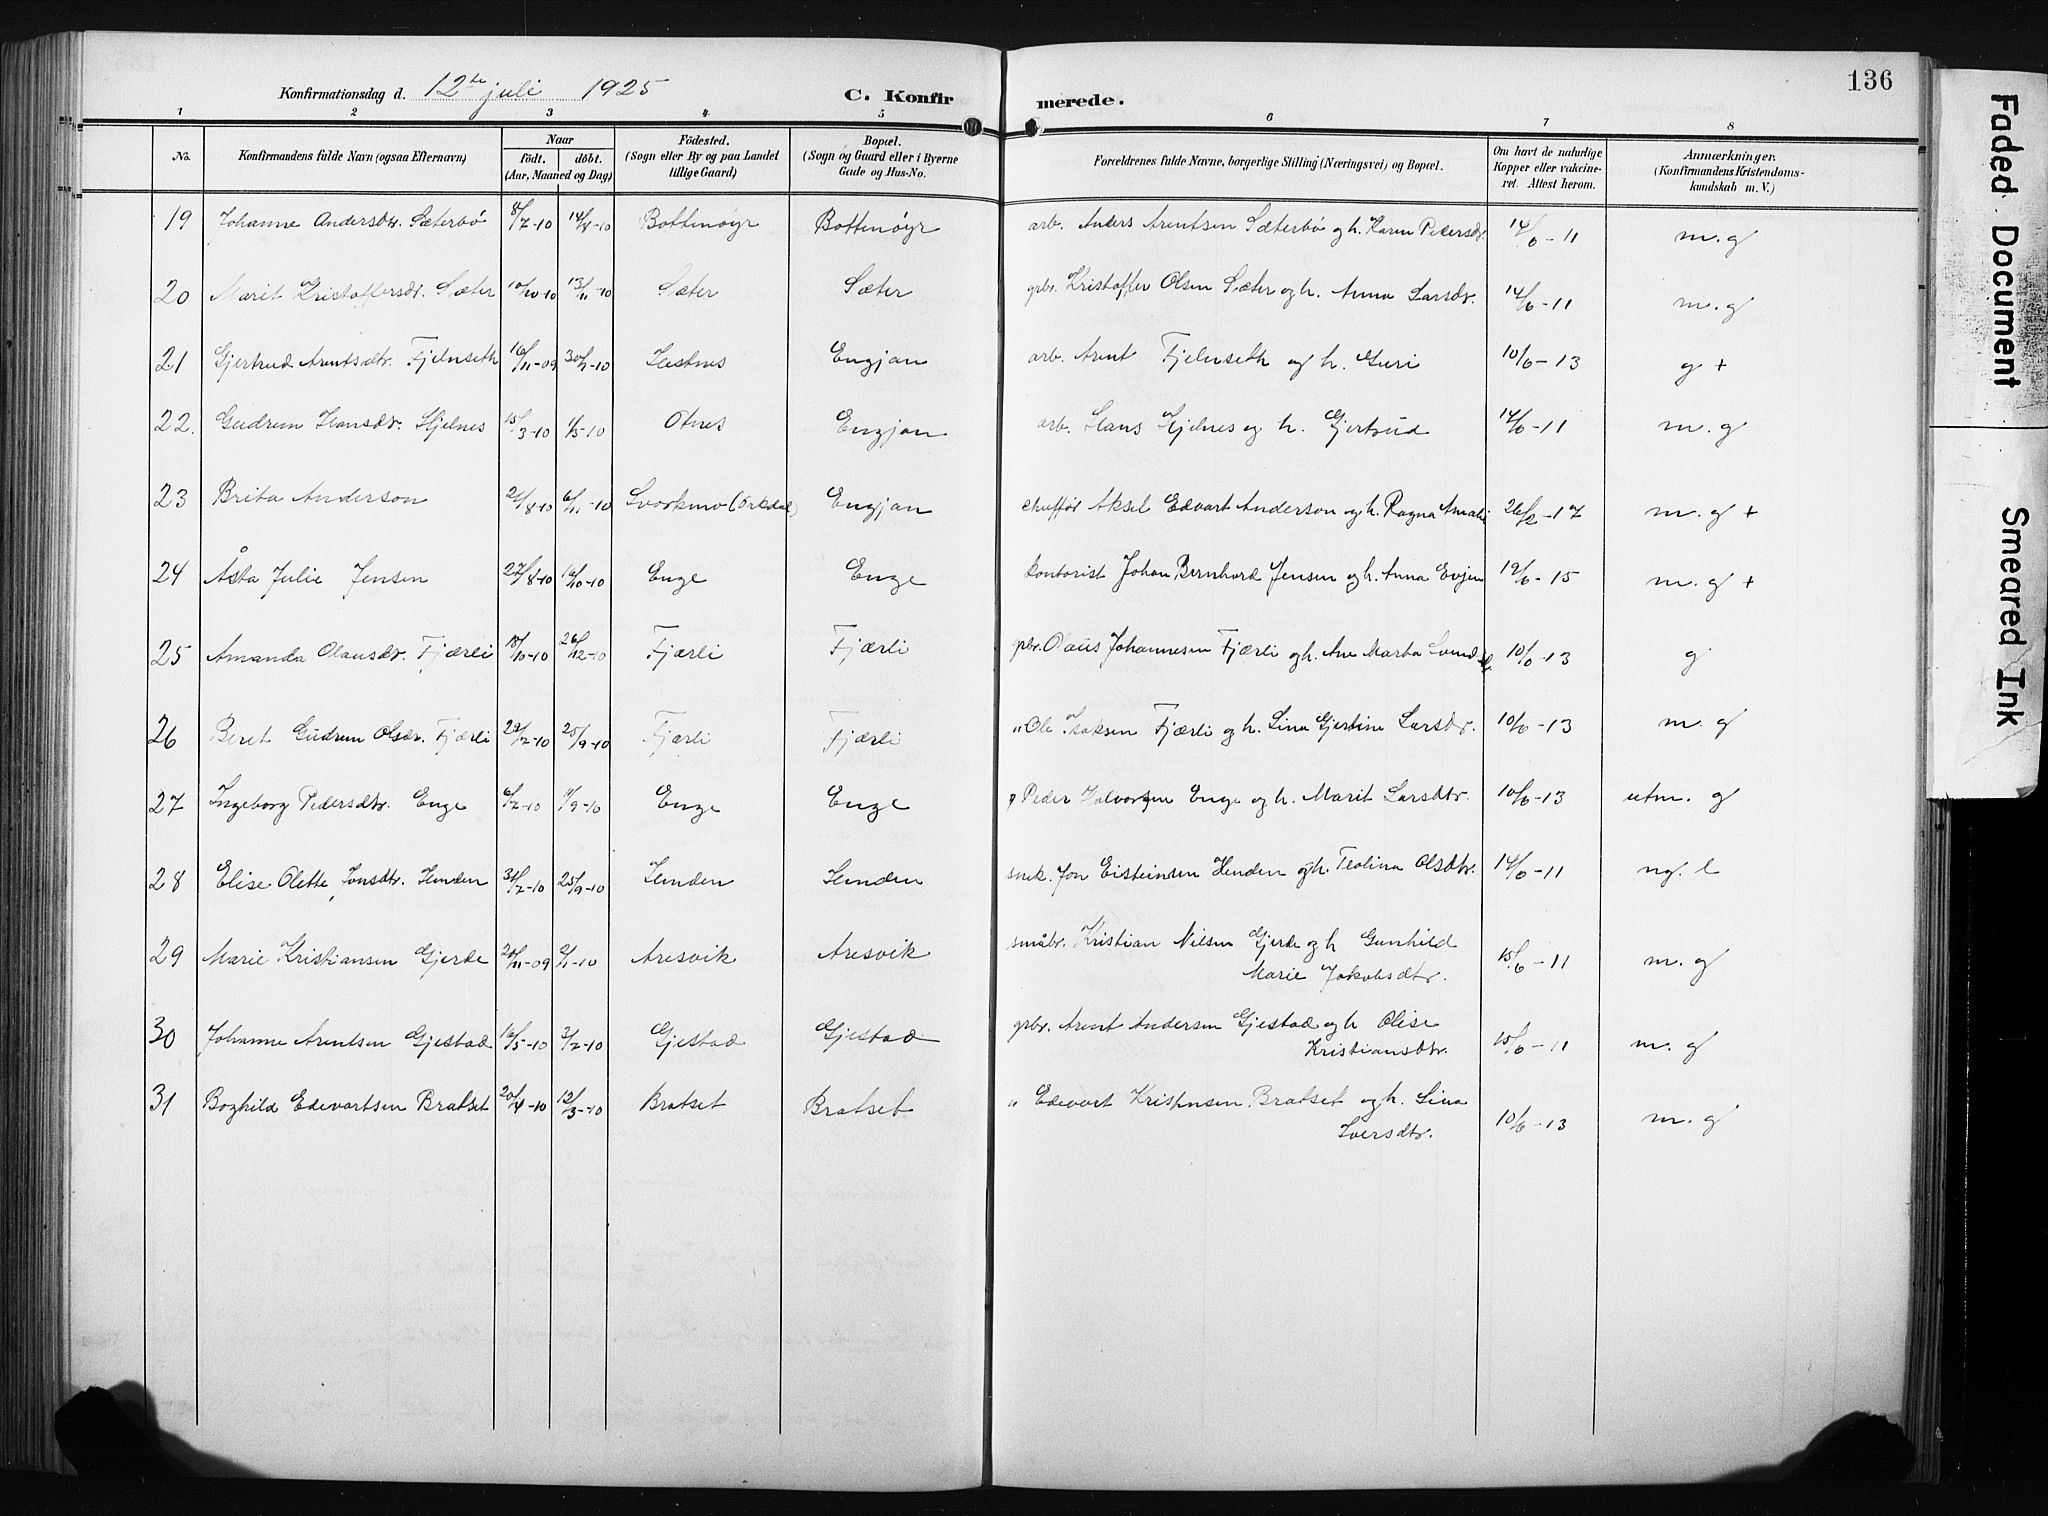 136
Konfirmationsdag d. 12te juli 1925 C. Konfir merede.
1 2 3 4 5 6 7 8
No. Konfirmandens fulde Navn (ogsaa Efternavn) Naar födt. döbt. (Aar, Maaned og Dag) Födested. (Sogn eller By og paa Landet tillige Gaard) Bopæl. (Sogn og Gaard eller i Byerne Gade og Hus-No. Forældrenes fulde Navne, borgerlige Stilling (Næringsvei) og Bopæl. Om havt de naturlige Kopper eller vakcineret. Attest herom. Anmærkninger. (Konfirmandens Kristendomskundskab m. V.)
19 Johanne Andersdtr. Sæterbö 8/7-10 14/8-10 Bottenöyr Bottenöyr arb. Anders Arentsen Sæterbö og h. Karen Pedersdr. 14/6-11 m. g
20 Marit Kristoffersdr. Sæter 10/10-10 13/11-10 Sæter Sæter gbr. Kristoffer Olsen Sæter og h. Anna Larsdr. 14/6-11 m. g
21 Gjertrud Arntsdtr. Fjelnseth 16/11-09 30/1-10 Hestnes Engjan arb. Arent Fjelnseth og h. Guri 10/6-13 g +
22. Gudrun Hansdr. Hjelnes 15/3-10 1/5-10 Otnes Engjan arb. Hans Hjelnes og h. Gjertrud 14/6-11 m. g
23 Brita Anderson 21/8-10 6/11-10 Svorkmo (Orkdal) Engjan chufför Aksel Edvart Anderson og h. Ragna Amalie 26/2-17 m. g +
24 Åsta Julie Jensen 27/8-10 16/10-10 Enge Enge kontorist Johan Bernhard Jensen og h. Anna Evjen 19/6-15 m. g +
25 Amanda Olausdr. Fjærli 18/10-10 26/12-10 Fjærli Fjærli gbr. Olaus Johannesen Fjærli og h. Ane Marta 10/6-13 g
26 Beret Gudrun Olsdr. Fjærli 29/7-10 25/9-10 Fjærli Fjærli " Ole Isaksen Fjærli og h. Lina Gjertine Larsdr. 10/6-13 m. g
27 Ingeborg Pedersdtr. Enge 6/7-10 11/9-10 Enge Enge Peder Halvorsen Enge og h. Marit Larsdtr. 10/6-13 utm. g
28 Elise Olette Jonsdtr. Henden 31/7-10 25/9-10 Henden Henden snek. Jon Eisteinsen Henden og h. Teolina Olsdtr. 14/6-11 ng. l
29 Marie Kristiansen Gjerde 24/11-09 2/1-10 Aresvik Aresvik småbr. Kristian Nilsen Gjerde og h Gunhild
Marie Jakobsdtr. 15/6-11 m. g
30 Johanne Arentsen Gjestad 16/5-10 3/7-10 Gjestad Gjestad gbr. Arent Andersen Gjestad og h Olise
Kristiansdtr. 15/6-11 m. g
31 Boghild Edevartsen Bratset 20/4-10 12/3-10 Bratset Bratset " Edevart Kristensen Bratset og h. Lina
Iversdtr. 10/6-13 m. g
Faded Document
Smeared Ink